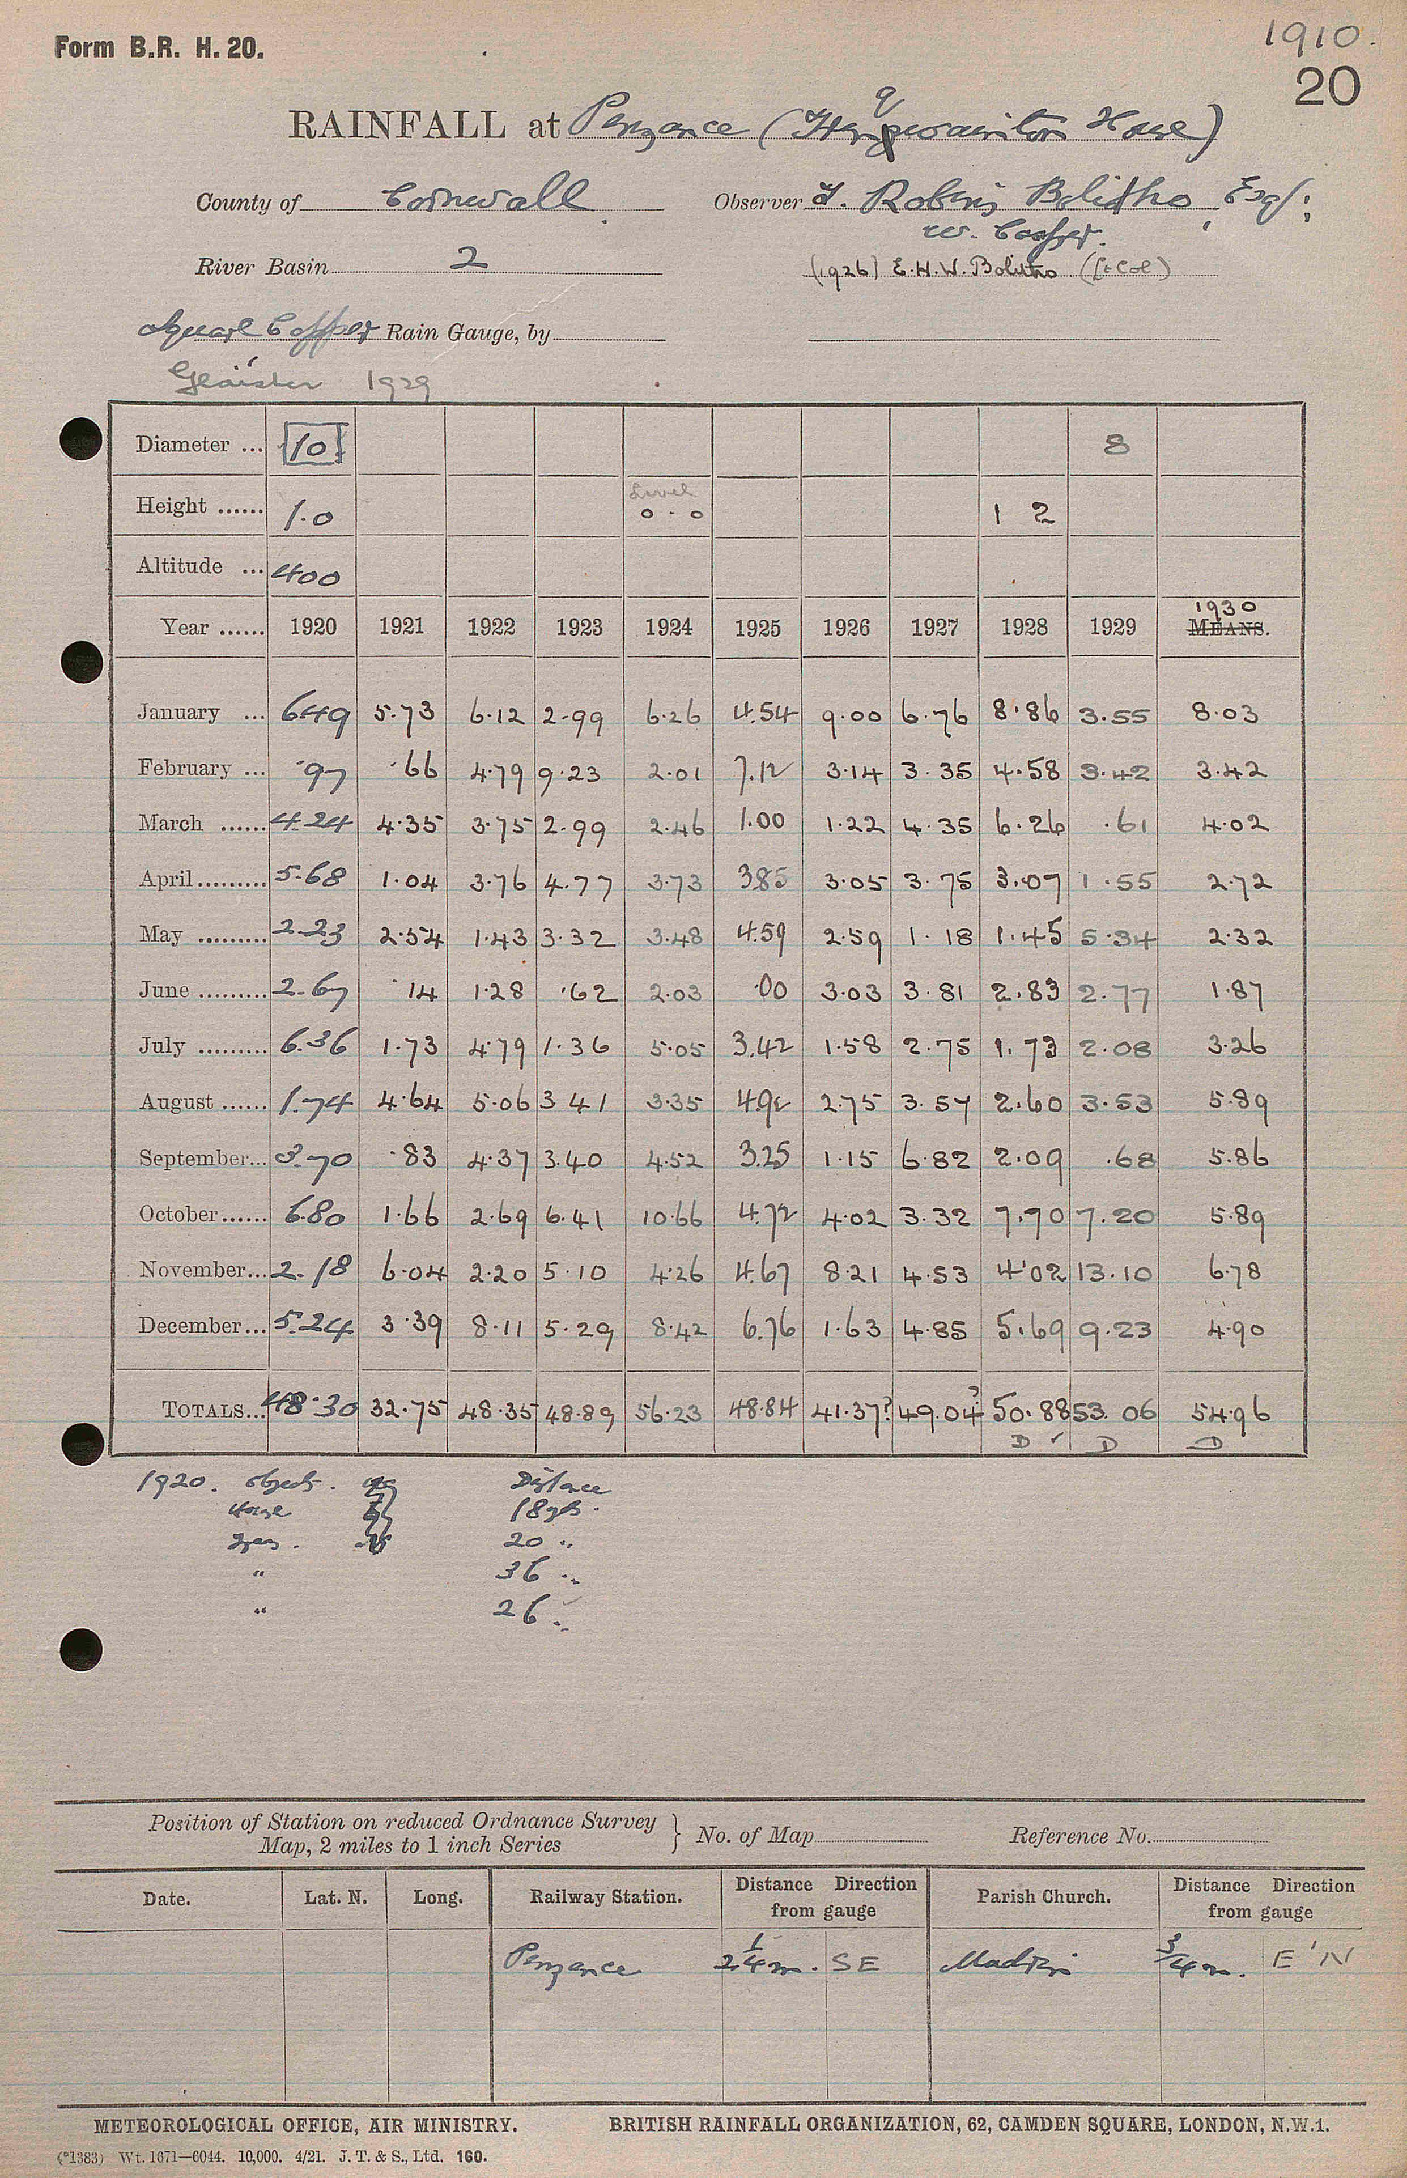 Form B.R. H. 20.
1910.
20
RAINFALL at Penzance (Trengwainton House)
County of Cornwall Observer T. Robins Bolitho, Esq;
W. Cooper.
River Basin 2 (1926) E.H.W. Bolitho (Lt Col)
Square Copper Rain Gauge, by
Glaisher 1929
Diameter ... 10 8
Height ...... 1.0 Level 0.0 1 2
Altitude ... 400
Year ...... 1920 1921 1922 1923 1924 1925 1926 1927 1928 1929 1930 MEANS.
January ... 6.49 5.73 6.12 2.99 6.26 4.54 9.00 6.76 8.86 3.55 8.03
February ... .97 .66 4.79 9.23 2.01 7.12 3.14 3.35 4.58 3.42 3.42
March ...... 4.24 4.35 3.75 2.99 2.46 1.00 1.22 4.35 6.26 .61 4.02
April ......... 5.68 1.04 3.76 4.77 3.73 3.85 3.05 3.75 3.07 1.55 2.72
May ......... 2.23 2.54 1.43 3.32 3.48 4.59 2.59 1.18 1.45 5.34 2.32
June ......... 2.67 .14 1.28 .62 2.03 .00 3.03 3.81 2.83 2.77 1.87
July ......... 6.36 1.73 4.79 1.36 5.05 3.42 1.58 2.75 1.73 2.08 3.26
August ...... 1.74 4.64 5.06 3 41 3.35 4.92 2.75 3.57 2.60 3.53 5.89
September... 3.70 .83 4.37 3.40 4.52 3.25 1.15 6.82 2.09 .68 5.86
October...... 6.80 1.66 2.69 6.41 10.66 4.72 4.02 3.32 7.70 7.20 5.89
November... 2.18 6.04 2.20 5.10 4.26 4.67 8.21 4.53 4.02 13.10 6.78
December... 5.24 3.39 8.11 5.29 8.42 6.76 1.63 4.85 5.69 9.23 4.90
TOTALS... 48.30 32.75 48.35 48.89 56.23 48.84 41.37? 49.04? 50.88 53.06 54.96
D ✓ D D
1920. Objects. Distance
House 18 yds.
Trees. 20 "
" 36 "
" 26 "
Position of Station on reduced Ordnance Survey
Map, 2 miles to 1 inch Series } No. of Map Reference No.
Date. Lat. N. Long. Railway Station. Distance Direction from gauge Parish Church. Distance Direction from gauge
Penzance 2 1/4 m. SE Madron 3/4 m. E'N
METEOROLOGICAL OFFICE, AIR MINISTRY. BRITISH RAINFALL ORGANIZATION, 62, CAMDEN SQUARE, LONDON, N.W.1.
(*1383) Wt. 1671—6044. 10,000. 4/21. J. T. & S., Ltd. 160.